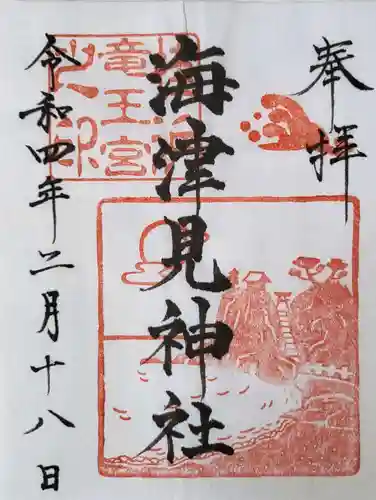 奉拝
海津見神社
令和四年二月十八日
竜王宮
之印